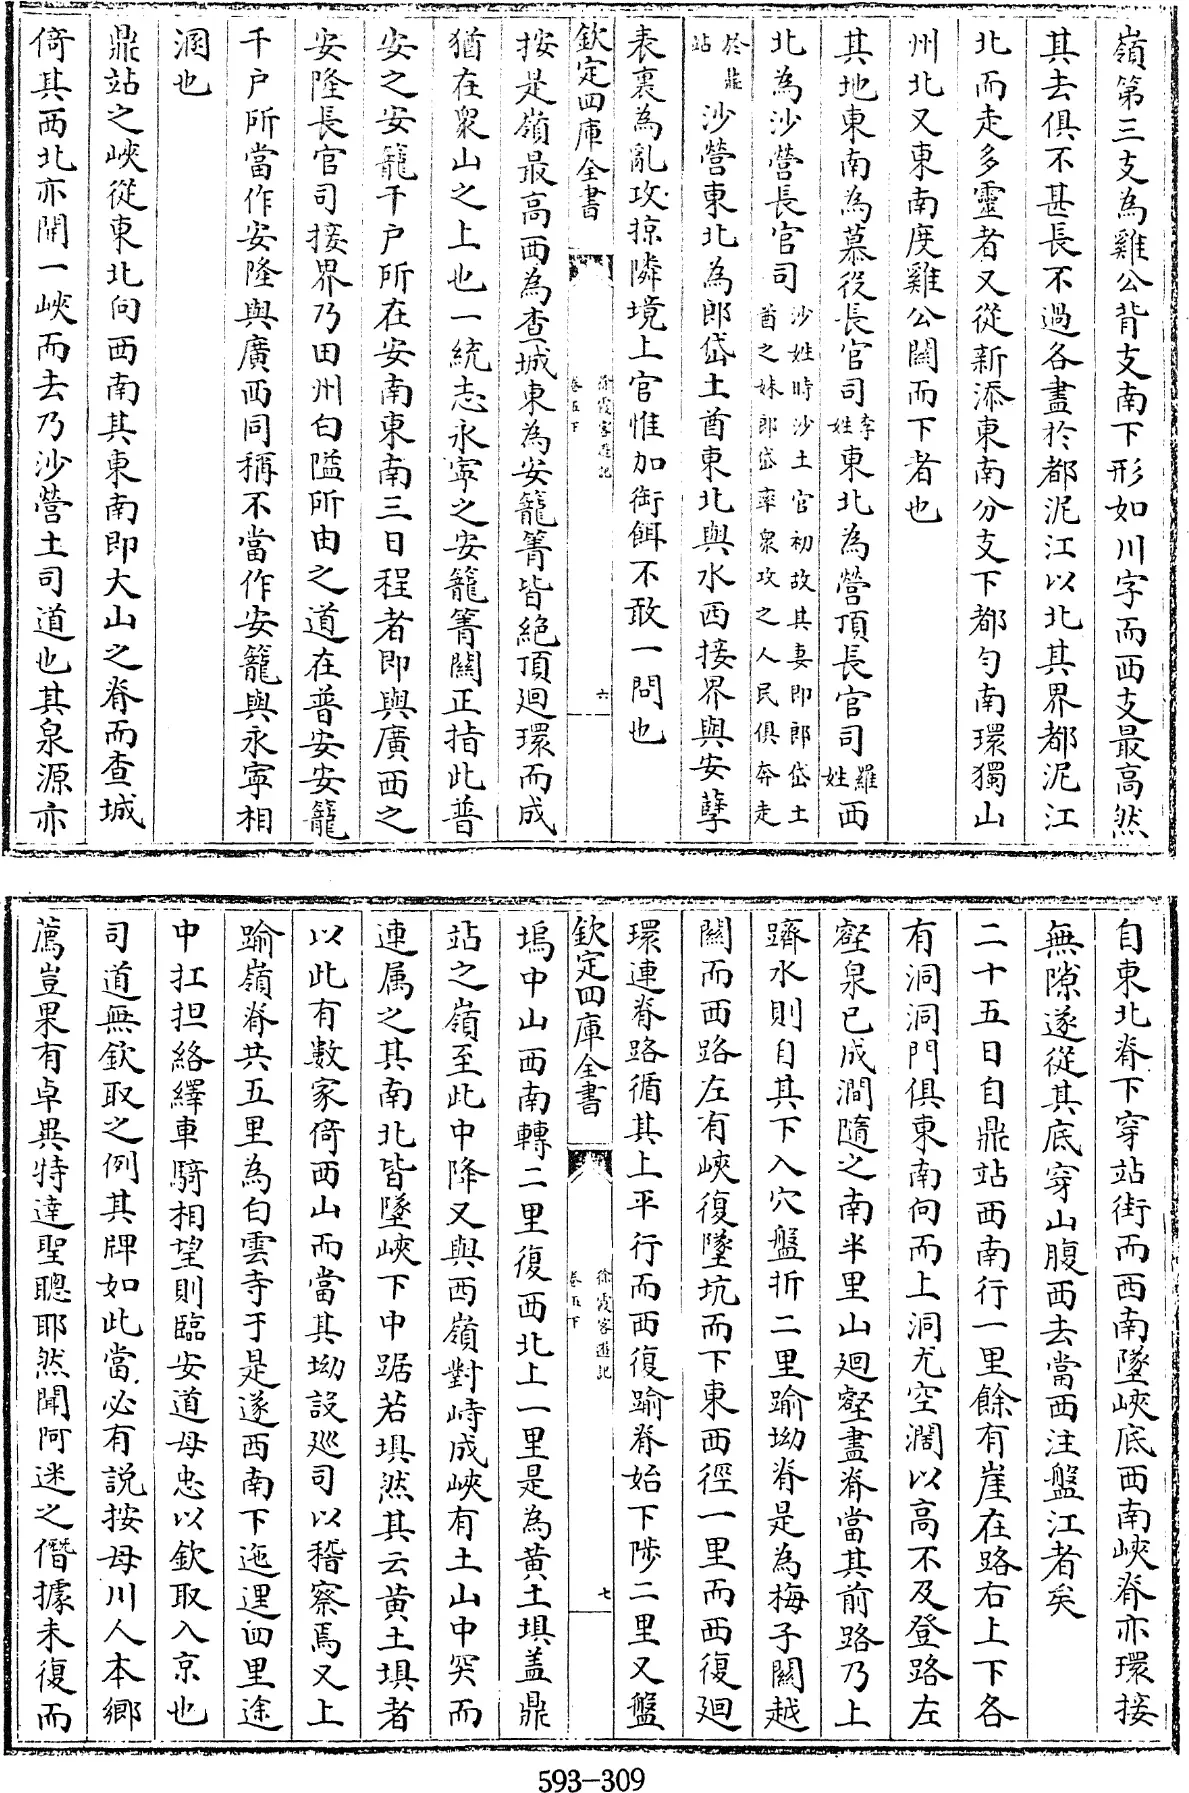 嶺第三支為雞公背支南下形如川字而西支最高然
其去俱不甚長不過各盡於都泥江以北其界都泥江
北而走多靈者又從新添東南分支下都勻南環獨山
州北又東南度雞公關而下者也
其地東南為慕役長官司李姓東北為營頂長官司羅姓西
北為沙營長官司沙姓時沙土官初故其妻即郎岱土酋之妹郎岱率衆攻之人民俱奔走
於鼎站沙營東北為郎岱土酋東北與水西接界與安孽
表裏為亂攻掠隣境上官惟加銜餌不敢一問也
欽定四庫全書 徐霞客遊記 卷五下 六
按是嶺最高西為查城東為安籠箐皆絕頂迴環而成
猶在衆山之上也一統志永寧之安籠箐關正指此普
安之安籠千戶所在安南東南三日程者即與廣西之
安隆長官司接界乃田州白隘所由之道在普安安籠
千戶所當作安隆與廣西同稱不當作安籠與永寧相
溷也
鼎站之峽從東北向西南其東南即大山之脊而查城
倚其西北亦開一峽而去乃沙營土司道也其泉源亦
自東北脊下穿站街而西南墜峽底西南峽脊亦環接
無隙遂從其底穿山腹西去當西注盤江者矣
二十五日自鼎站西南行一里餘有崖在路右上下各
有洞洞門俱東南向而上洞尤空濶以高不及登路左
壑泉已成澗隨之南半里山迴壑盡脊當其前路乃上
躋水則自其下入穴盤折二里踰坳脊是為梅子關越
關而西路左有峽復墜坑而下東西徑一里而西復迴
環連脊路循其上平行而西復踰脊始下陟二里又盤
欽定四庫全書 徐霞客遊記 卷五下 七
塢中山西南轉二里復西北上一里是為黃土埧盖鼎
站之嶺至此中降又與西嶺對峙成峽有土山中突而
連属之其南北皆墜峽下中踞若埧然其云黄土埧者
以此有數家倚西山而當其坳設巡司以稽察焉又上
踰嶺脊共五里為白雲寺于是遂西南下迤邐四里途
中扛担絡繹車騎相望則臨安道母忠以欽取入京也
司道無欽取之例其牌如此當必有説按母川人本鄉
薦豈果有卓異特達聖聰耶然聞阿迷之僭據未復而
593-309